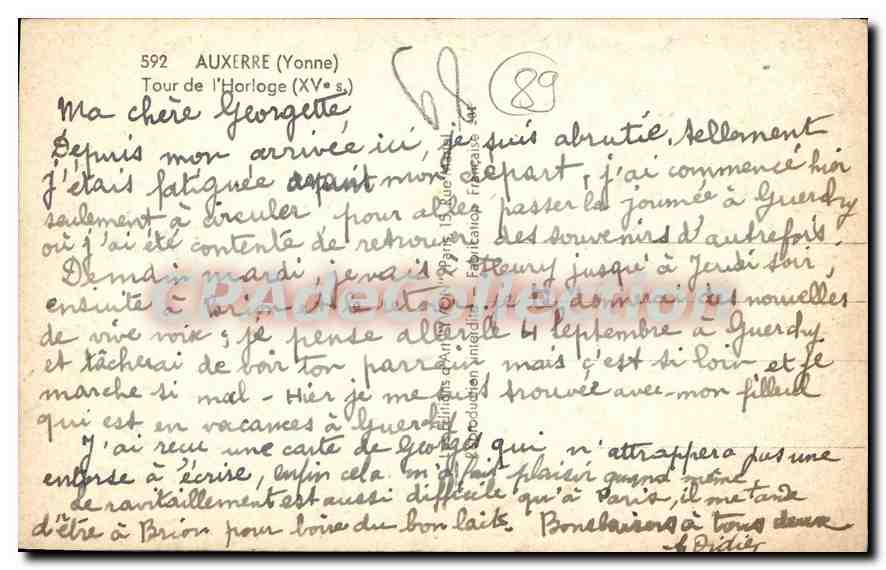 592 AUXERRE (Yonne)
Tour de l'Horloge (XVe s.)
68
89
Ma chère Georgette
Depuis mon arrivée ici, je suis abrutie, tellement
j'étais fatiguée avant mon départ, j'ai commencé hier
seulement à circuler pour aller passer la journée à Guerchy
où j'ai été contente de retrouver des souvenirs d'autrefois.
Demain mardi je vais à Fleury jusqu'à Jeudi soir,
ensuite à Brion et le retour, je te donnerai des nouvelles
de vive voix; je pense aller le 4 Septembre à Guerchy
et tâcherai de voir ton parrain, mais c'est si loin et je
marche si mal - Hier je me suis trouvée avec mon filleul
qui est en vacances à Guerchy
J'ai reçu une carte de Georges qui n'attrappera pas une
entorse à écrire, enfin cela m'a fait plaisir quand même
Le ravitaillement est aussi difficile qu'à Paris, il me tarde
d'être à Brion pour boire du bon lait. Bons baisers à tous deux
Didier
Les Editions d'Art "YVON" Paris, 15, Rue Martel
Reproduction interdite Fabrication Française
CPAdeCollection